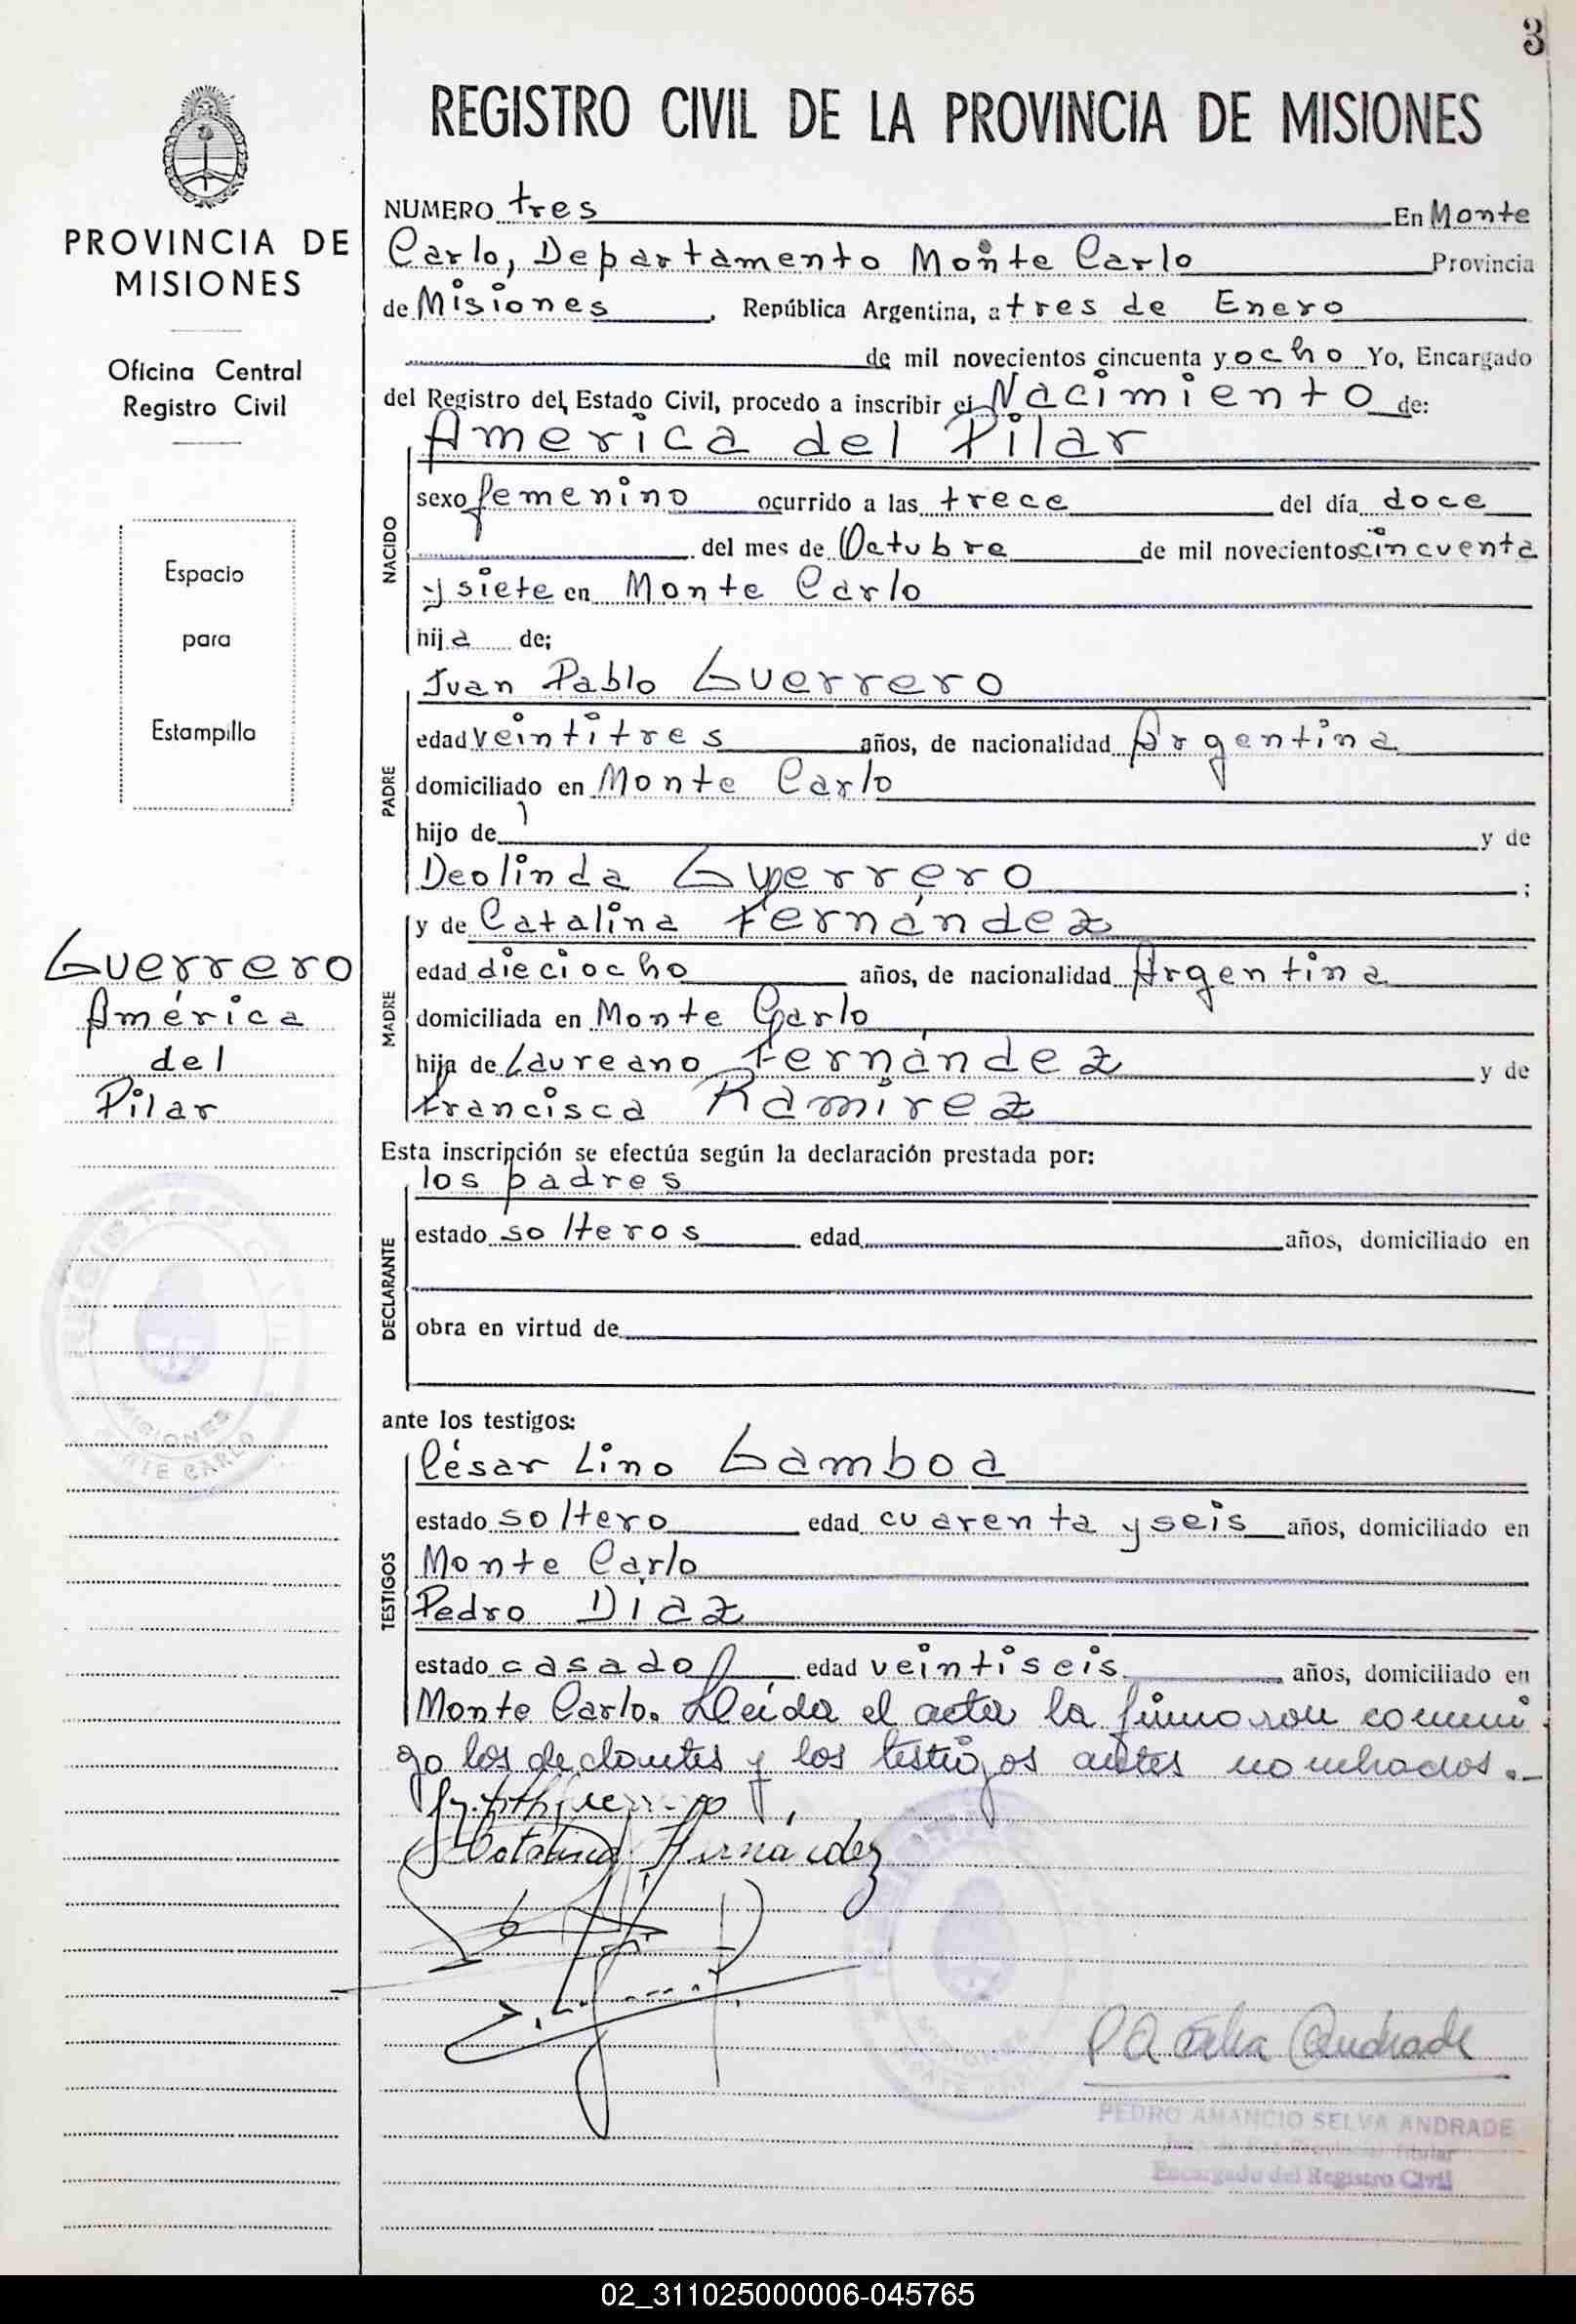 3
REGISTRO CIVIL DE LA PROVINCIA DE MISIONES
PROVINCIA DE
MISIONES
Oficina Central
Registro Civil
Espacio
para
Estampilla
Guerrero
América
del
Pilar
NUMERO tres En Monte
Carlo, Departamento Monte Carlo Provincia
de Misiones, República Argentina, a tres de Enero
de mil novecientos cincuenta y ocho Yo, Encargado
del Registro del Estado Civil, procedo a inscribir el Nacimiento de:
America del Pilar
NACIDO
sexo femenino ocurrido a las trece del día doce
del mes de Octubre de mil novecientos cincuenta
y siete en Monte Carlo
hija de;
Juan Pablo Guerrero
PADRE
edad veintitres años, de nacionalidad Argentina
domiciliado en Monte Carlo
hijo de y de
Deolinda Guerrero ;
y de Catalina Fernández
MADRE
edad dieciocho años, de nacionalidad Argentina
domiciliada en Monte Carlo
hija de Laureano Fernández y de
Francisca Ramírez
Esta inscripción se efectúa según la declaración prestada por:
los padres
DECLARANTE
estado solteros edad años, domiciliado en
obra en virtud de
ante los testigos:
César Lino Gamboa
TESTIGOS
estado soltero edad cuarenta y seis años, domiciliado en
Monte Carlo
Pedro Díaz
estado casado edad veintiseis años, domiciliado en
Monte Carlo. Leida el acta la firmaron conmi
go los declantes y los testigos antes nombrados.-
Catalina Fernández
REGISTRO CIVIL
MISIONES
MONTE CARLO
MISIONES
P A Selva Andrade
PEDRO AMANCIO SELVA ANDRADE
Encargado del Registro Civil
02_311025000006-045765